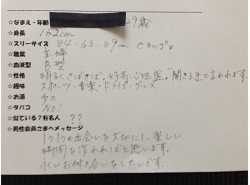 ☆なまえ・年齢 29歳
☆身長 162cm
☆スリーサイズ 84-63-89cm Cカップ
☆職業 主婦
☆血液型 B型
☆性格 明るくさばさば、好奇心旺盛。聞き上手と言われます。
☆趣味 スポーツ・音楽・ドライブ・ダンス
☆お酒 NO
☆タバコ NO!
☆似ている?有名人 ??
☆男性会員さまへメッセージ
1つ1つの出会いを大切にし、楽しい
時間を作れればと思います。
永いお付き合いをしたいです。